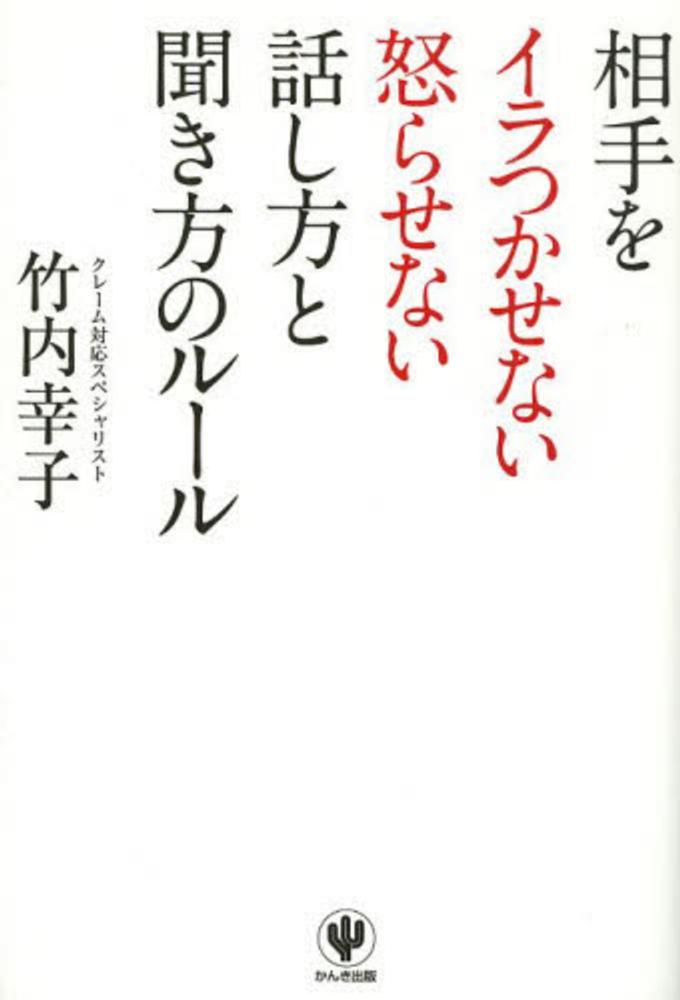 相手を
イラつかせない
怒らせない
話し方と
聞き方のルール
クレーム対応スペシャリスト
竹内幸子
かんき出版